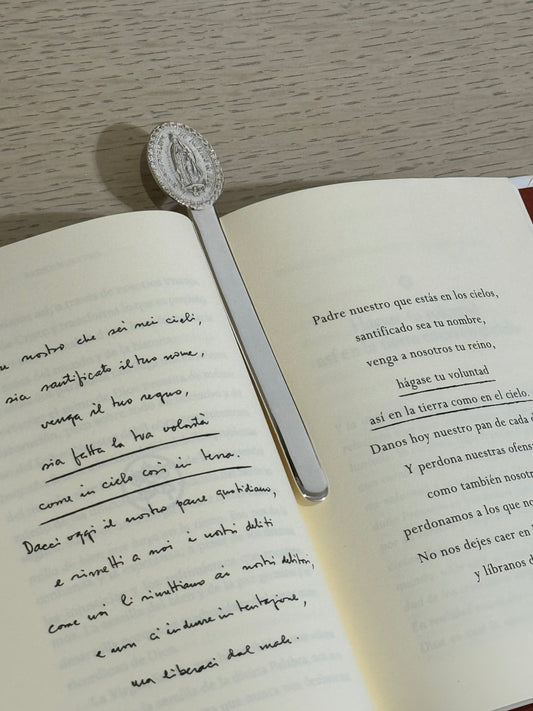 nostro che sei nei cieli,
sia santificato il tuo nome,
venga il tuo regno,
sia fatta la tua volontà
come in cielo così in terra.
Dacci oggi il nostro pane quotidiano,
e rimetti a noi i nostri debiti
come noi li rimettiamo ai nostri debitori,
e non ci indurre in tentazione,
ma liberaci dal male.
Padre nuestro que estás en los cielos,
santificado sea tu nombre,
venga a nosotros tu reino,
hágase tu voluntad
así en la tierra como en el cielo.
Danos hoy nuestro pan de cada
Y perdona nuestras ofens
como también nosotr
perdonamos a los que no
No nos dejes caer en
y líbranos d